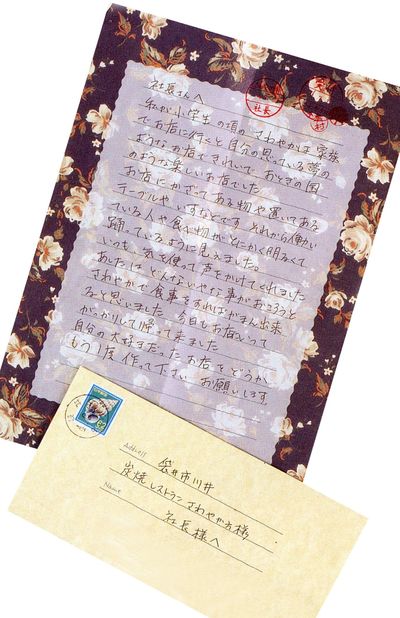 社長さんへ
社長
私が小学生の頃のさわやかは家族
でお店に行くと自分の思っている夢の
ようなお店できれいで、おとぎの国
のような楽しいお店でした
お店にかざってある物や置いてある
テーブルや、いすなどです それから働い
ている人や食べ物がとにかく明るくて
踊っているように見えました。
いつも、気を使って声をかけてくれました
あたしはどんないやな事がおころうと
さわやかで食事をすればがまん出来
ると思いました。今日もお店にいって
がっかりして帰って来ました
自分の大好きだったお店をどうか
もう1度作って下さい お願いします
Address 袋井市川井
炭焼レストランさわやか方様
Name 社長様へ